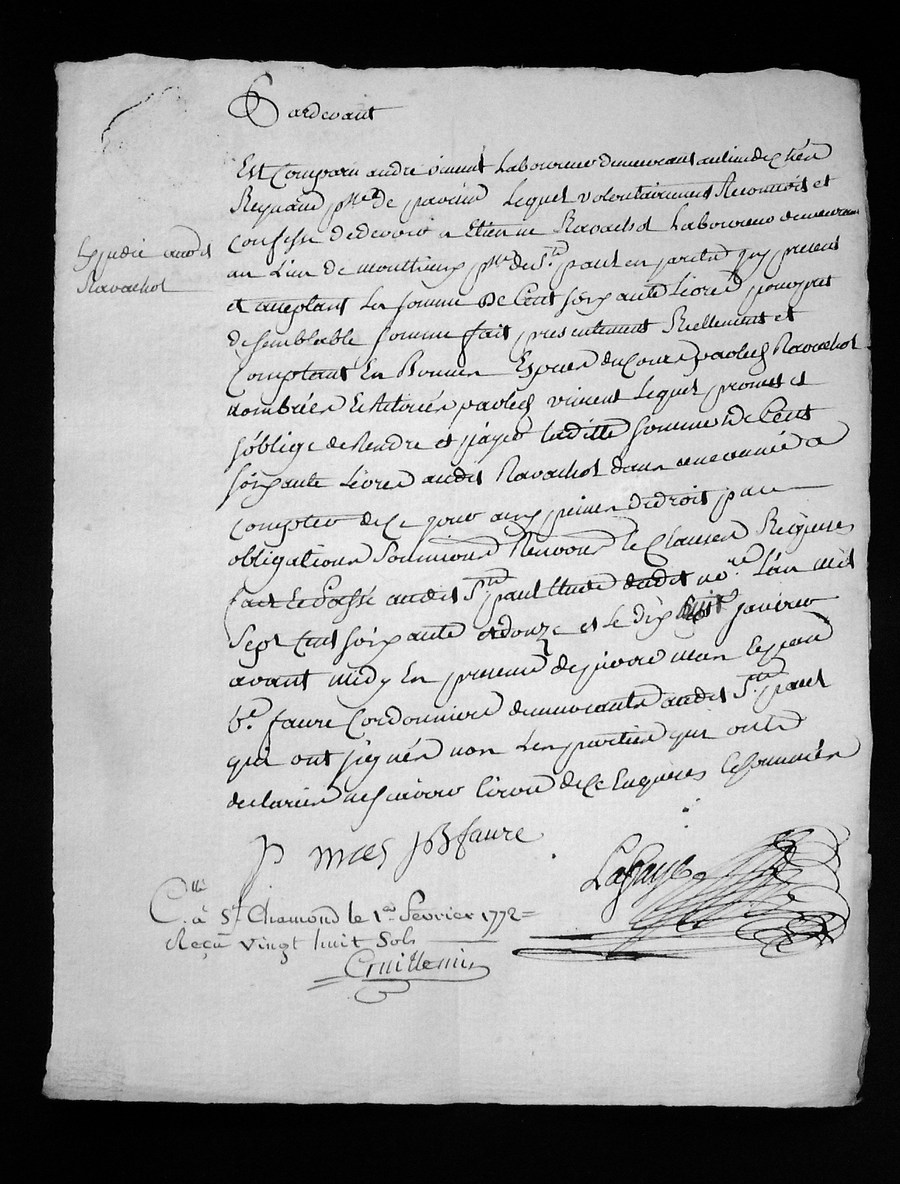 Pardevant
Est Comparu andré vincent Laboureur demeurant au lieu de
Reynaud psse de pavezin Lequel volontairement Reconnoit et
Confesse de devoir a Etienne Ravachol Laboureur demeurant
au Lieu de monthieux psse de St paul en jarêts quy present
et aceptant La somme De Cent soixante Livres pour pret
de semblable somme fait presentement Reellement et
Comptant En Bonnes Especes du Cours par led Ravachol
nombrées Et Retirées par led vincent Lequel promet et
s'oblige de Rendre et payer laditte somme de Cent
soixante Livres audit Ravachol dans une année a
Compter de Ce jour aux peines de droit par
obligations Soumissions Renvons Et Clauses Requises
fait Et Passé audit St paul Etude dudit nore L'an mil
Sept Cent soixante et douze et le dix huit janvier
avant midy En presence de
faure Cordonniers demeurants audit St paul
qui ont signés non Les parties qui ont
declarées ne sçavoir Ecrire de Ce Enquises Et sommées
P mées JB faure
Lafaye
Cllé à St Chamond le 1er Février 1772
Reçu vingt huit Sols
Guillemin
Expedié audit
Ravachol